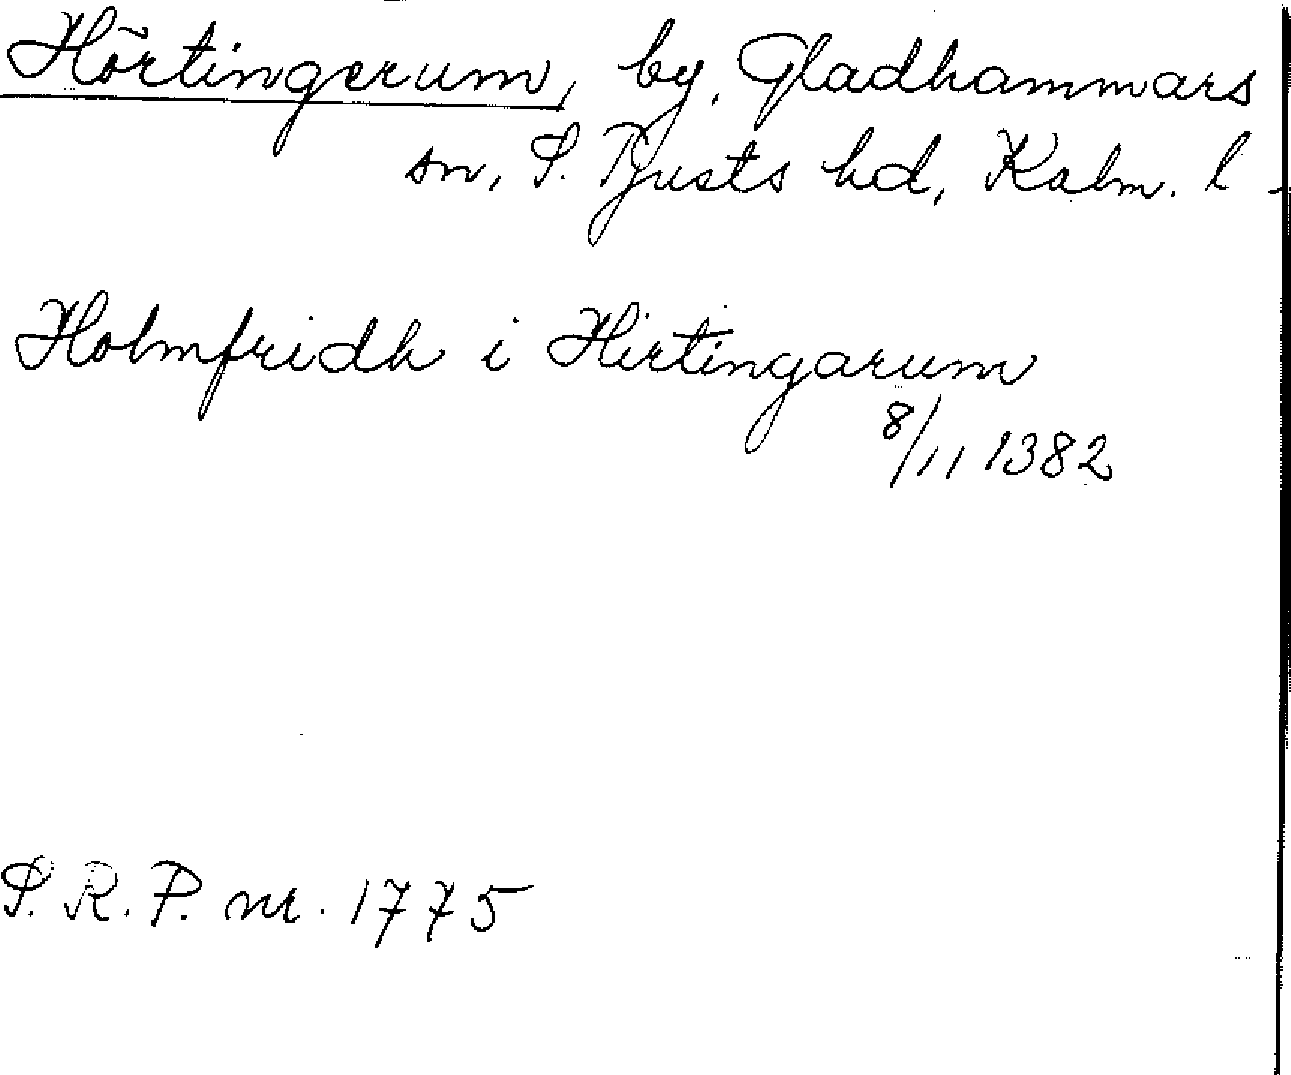 Hörtingerum, by, Gladhammars
sn, S. Tjusts hd, Kalm. l.
Holmfridh i Hirtingarum
8/11 1382
S.R.P. nr. 1775